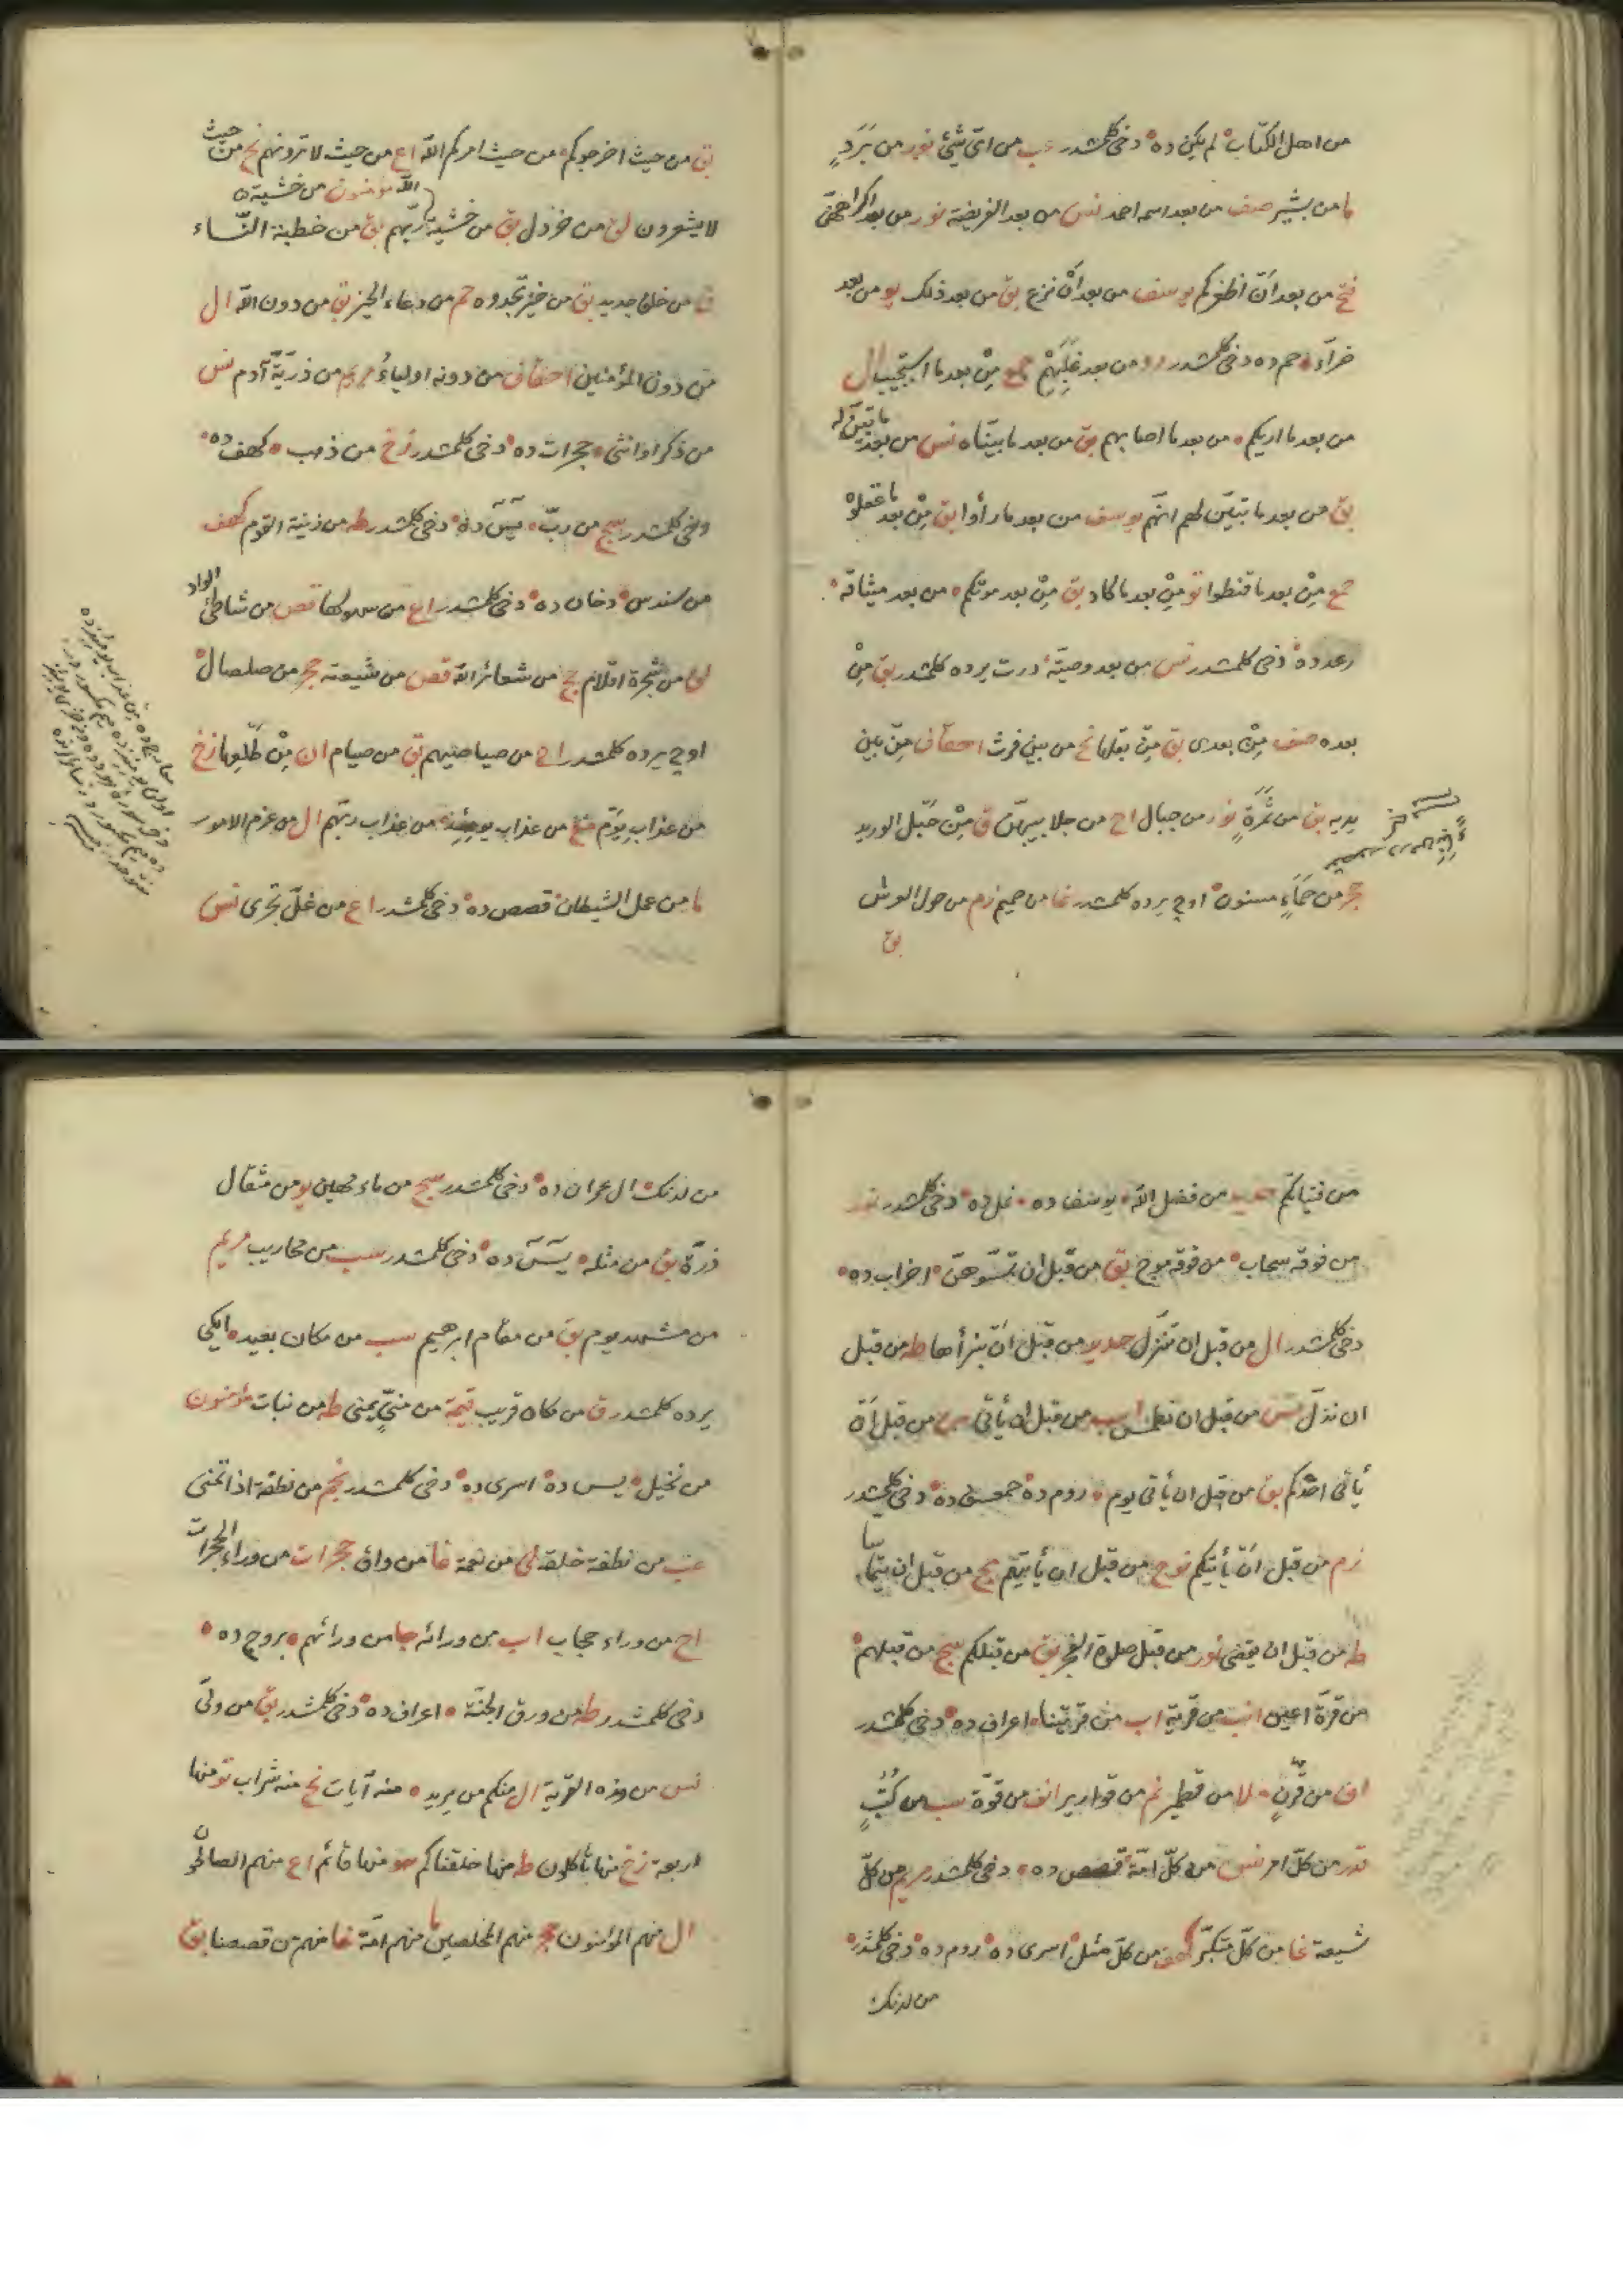 من اهل الكتاب لم يكن ده دخى كلمشدر عب من اىّ شئ نور من بَرَدٍ
ما من بشير صف من بعد اسمه احمد نس من بعد الفريضة نور من بعد اكراههنّ
فتح من بعد اَنْ اظفركم يوسف من بعد اَنْ نزغ بق من بعد ذلك يو من بعد
ضرّآء حم ده دخى كلمشدر روم من بعد غَلَبِهِمْ حمع مِنْ بعد ما استجيب ال
من بعد ما اريكم من بعد ما اصابهم بق من بعد ما بيّنّاه نس من بعد ما تبيّن له
بق من بعد ما تبيّن لهم انّهم يوسف من بعد ما رأوا بق مِنْ بعد ما عقلوه
حمع مِنْ بعد ما قنطوا تو مِنْ بعد ما كاد بق مِنْ بعد موتكم من بعد ميثاقه
رعد ده دخى كلمشدر نس من بعد وصيّة درت يرده كلمشدر بق مِنْ
بعده صف مِنْ بعدى بق مِنْ بقلها نح من بين فرث احقاف مِنْ بين
يديه بق من ثَمَرَةٍ نور من جبال اح من جلابيبهنّ ق مِنْ حَبْل الوريد
حجر من حَمَاءٍ مسنون اوچ يرده كلمشدر غا من حميم زم من حول العرش
بق
بق من حيث اخرجوكم من حيث امركم اللّه اع من حيث لا ترونهم نح من حيث
لا يشعرون لق من خردل بق من خشية اللّه مؤمنون من خشية ربّهم بق من خطبة النّساء
ق من خلق جديد بق من خير تجدوه حم من دعاء الخير بق من دون اللّه ال
من دون المؤمنين احقاف من دونه اولياءُ مريم من ذرّيّة آدم نس
من ذكر او انثى حجرات ده دخى كلمشدر زخ من ذهب كهف ده
دخى كلمشدر سج من ربّ يس ده دخى كلمشدر طه من زينة القوم كهف
من سندس دخان ده دخى كلمشدر اع من سهولها قص من شاطئ الواد
لق من شجرة اقلام حج من شعائر اللّه قص من شيعته حجر من صلصال
اوچ يرده كلمشدر اح من صياصيهم بق من صيام ان مِنْ طَلْعِها زخ
من عذابِ يَوْمٍ مع من عذاب يومئذ من عذاب ربّهم ال من عزم الامور
ما من عمل الشيطان قصص ده دخى كلمشدر اع من غلّ تجرى نس
من فتياتكم حديد من فضل اللّه يوسف ده نمل ده دخى كلمشدر نور
من فوقه سحاب من فوقه موج بق من قبل ان تمسّوهنّ احزاب ده
دخى كلمشدر ال من قبل ان تنزّل حديد من قبل اَنْ نبرأها طه من قبل
ان نذلّ نس من قبل ان نطمس ابر من قبل ان يأتى من من قبل اَنْ
يأتى احدكم بق من قبل ان يأتى يوم روم ده حمعسق ده دخى كلمشدر
زم من قبل اَنْ يأتيكم نوح من قبل ان يأتيهم مج من قبل ان يتماسّا
طه من قبل ان يقضى نور من قبل صلوة الفجر بق من قبلكم سج من قبلهم
من قرّة اعين انب من قرية اب من قريتنا اعراف ده دخى كلمشدر
ان من قَرْنٍ ملا من قطمير نم من قوارير انف من قوّة سب من كُتُبٍ
قدر من كلّ امر نس من كلّ امّة قصص ده دخى كلمشدر مريم من كلّ
شيعة غا من كلّ متكبّر كهف من كلّ مثل اسرى ده روم ده دخى كلمشدر
من لدنك
من لدنك ال عمران ده دخى كلمشدر سج من ماء مهين يو من مثقال
ذرّة بق من مثله يس ده دخى كلمشدر سب من محاريب مريم
من مشهد يوم بق من مقام ابرهيم سب من مكان بعيد ايكى
يرده كلمشدر ق من مكان قريب قيمة من منىّ يمنى طه من نبات مؤمنون
من نخيل يس ده اسرى ده دخى كلمشدر نجم من نطفة اذا تمنى
عب من نطفة خلقه نح من نعمة غا من واق حجرات من وراء الحجرات
اح من وراء حجاب اب من ورائه جا من ورائهم بروج ده
دخى كلمشدر طه من ورق الجنّة اعراف ده دخى كلمشدر بق من ولىّ
نس من هذه القرية ال منكم من يريد منه آيات نح منه شراب تو منها
اربعة زخ منها تأكلون طه منها خلقناكم هو منها قائم اع منهم الصالحون
ال منهم المؤمنون حجر منهم المخلصين ما منهم امّة غا منهم من قصصنا بق